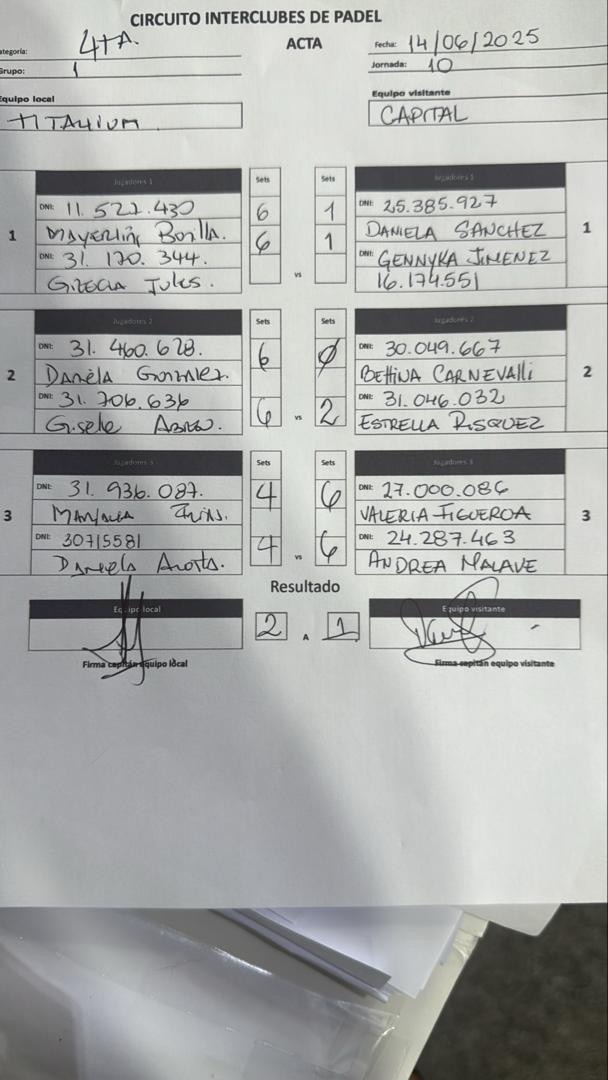 CIRCUITO INTERCLUBES DE PADEL
ategoria: 4TA.
ACTA
Fecha: 14/06/2025
Grupo: 1
Jornada: 10
Equipo local
Equipo visitante
TITANIUM
CAPITAL
Jugadores 1 Sets Sets Jugadores 1
DNI: 11.527.430 6 1 DNI: 25.385.927
1 6 1 DANIELA SANCHEZ 1
DNI: 31.170.344. DNI: GENNYKA JIMENEZ
vs 16.174.551
Jugadores 2 Sets Sets Jugadores 2
DNI: 31.460.628. 6 0 DNI: 30.049.667
2 Daniela Gonzalez. BETTINA CARNEVALLI 2
DNI: 31.706.636 6 vs 2 DNI: 31.046.032
ESTRELLA RISQUEZ
Jugadores 3 Sets Sets Jugadores 3
DNI: 31.936.087. 4 6 DNI: 27.000.086
3 VALERIA FIGUEROA 3
DNI: 30715581 4 vs 6 DNI: 24.287.463
Daniela ANDREA MALAVE
Resultado
Equipo local 2 A 1 Equipo visitante
Firma capitán equipo local
Firma capitán equipo visitante